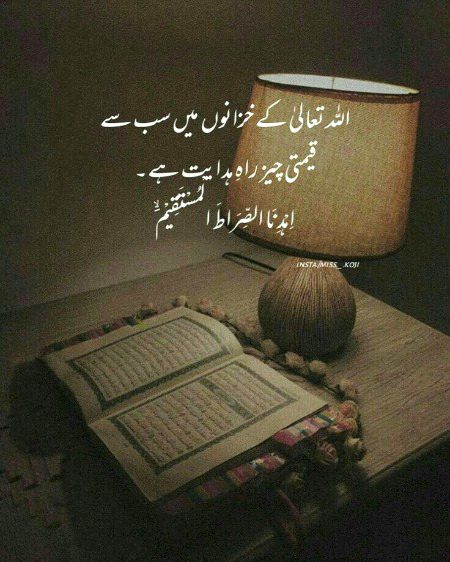 اللہ تعالیٰ کے خزانوں میں سب سے
قیمتی چیز راہ ہدایت ہے۔
اِهْدِنَا الصِّرَاطَ الْمُسْتَقِيْمَۙ
INSTA/MISS_.KOJI